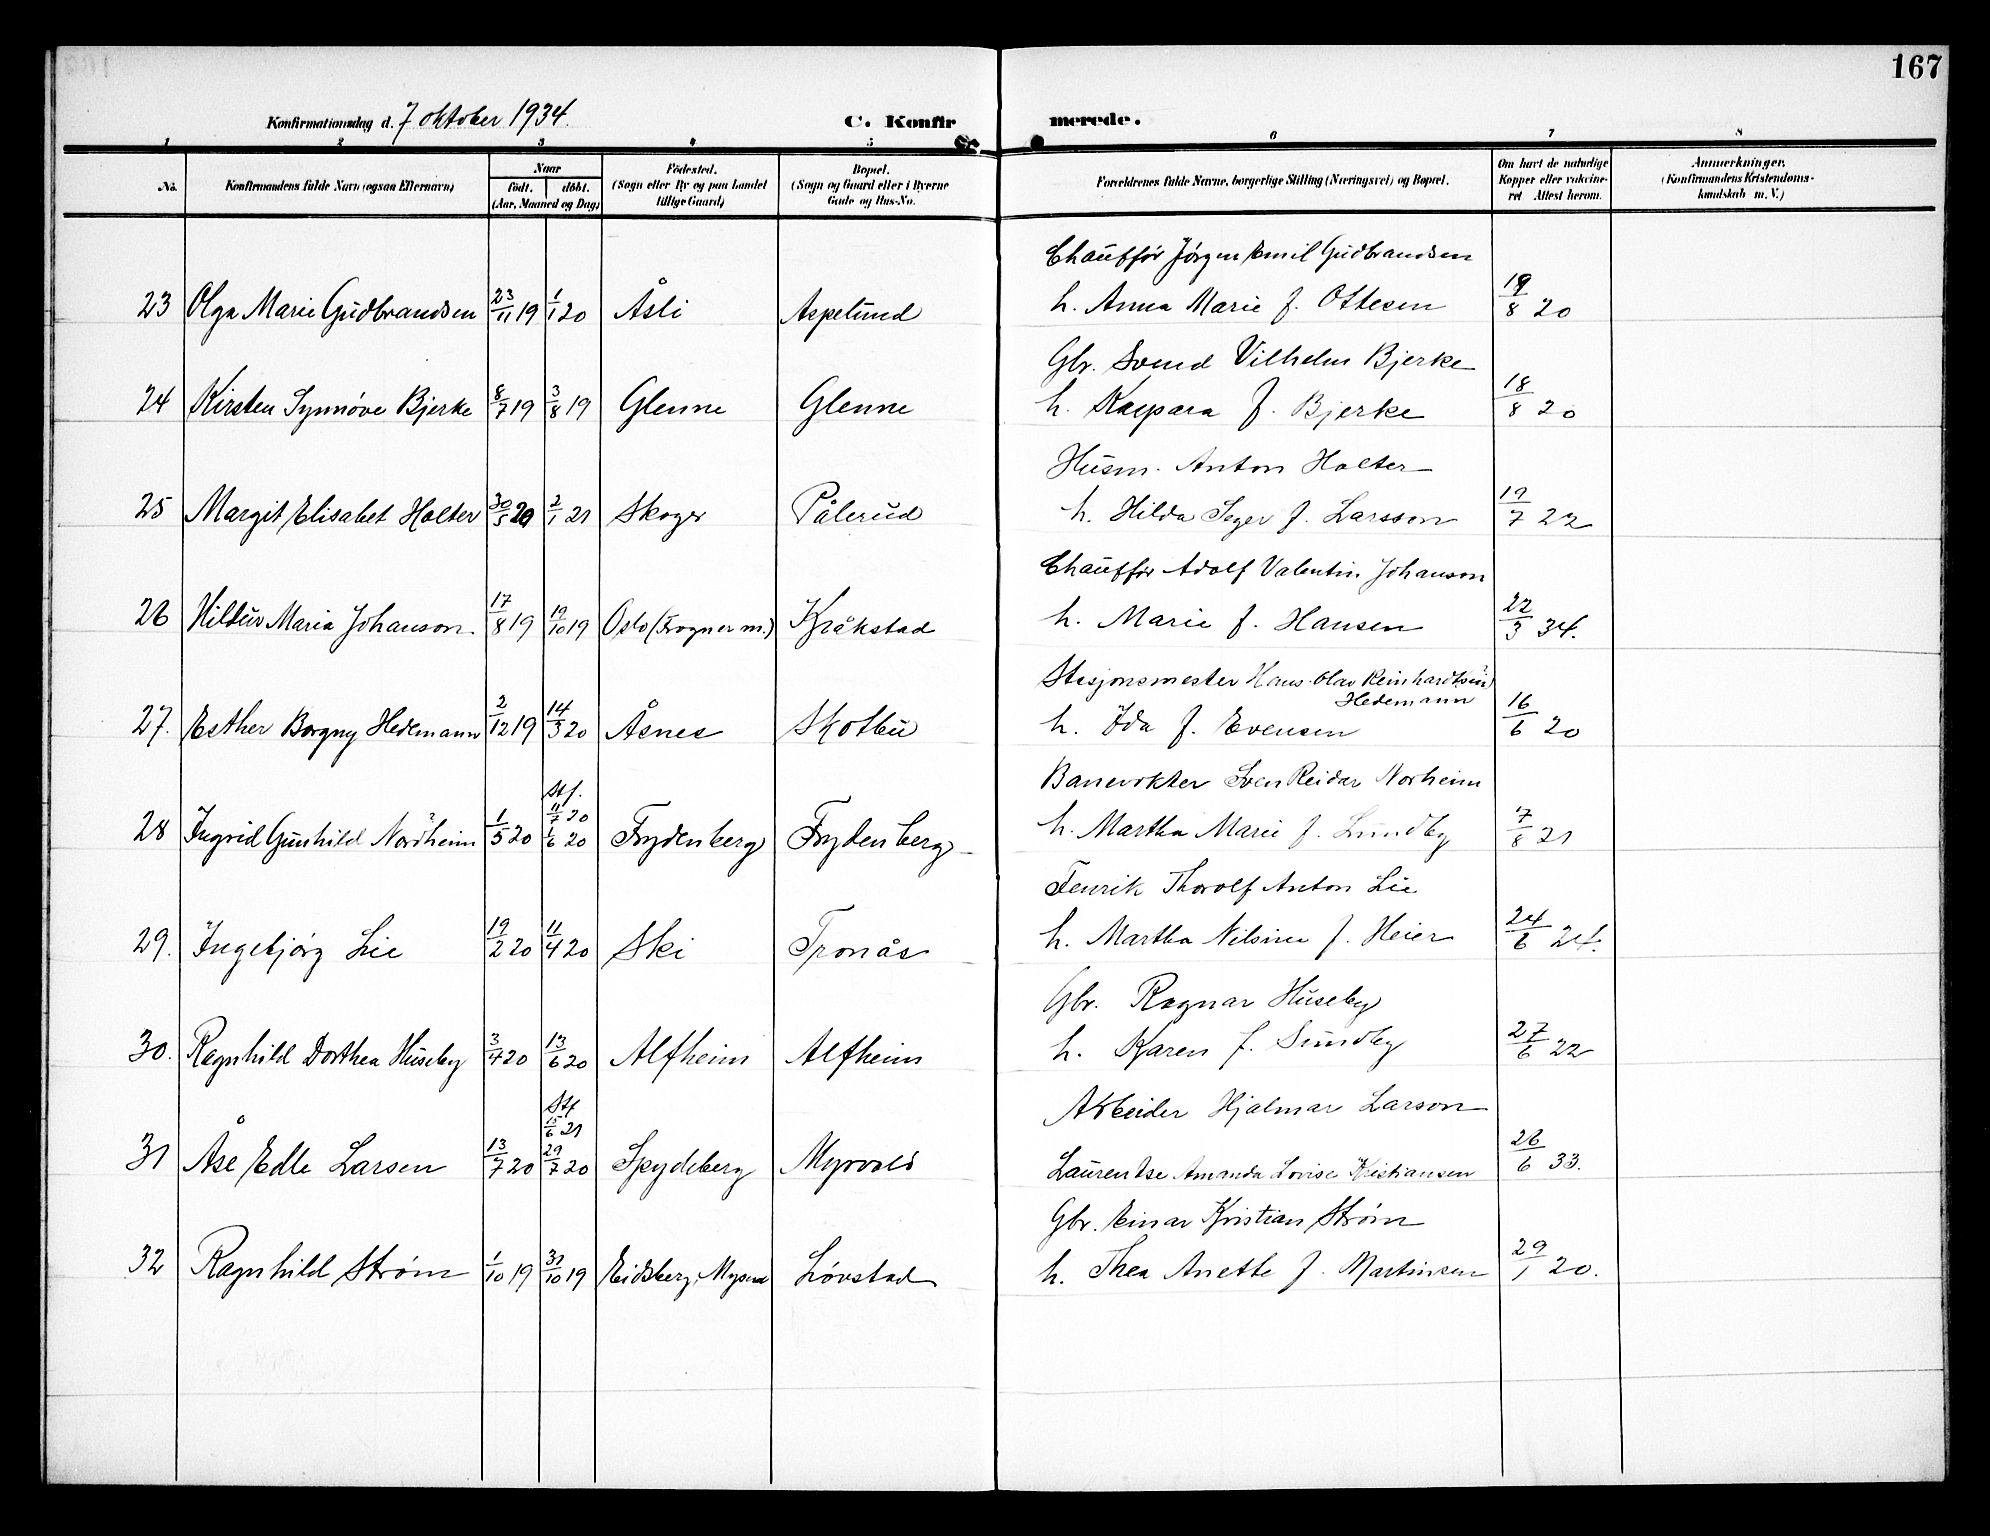 167
Konfirmationsdag d. 7 oktober 1934. C. Konfirmerede.
1 2 3 4 5 6 7 8
No. Konfirmandens fulde Navn (ogsaa Efternavn) Naar født. døbt. (Aar, Maaned og Dag) Fødested. (Sogn eller By og paa Landet tillige Gaard) Bopæl. (Sogn og Gaard eller i Byerne Gade og Hus-No. Forældrenes fulde Navne, borgerlige Stilling (Næringsvei) og Bopæl. Om havt de naturlige Kopper eller vakcineret Attest herom. Anmerkninger. (Konfirmandens Kristendomskundskab m. V.)
Chauffør Jørgen Emil Gudbrandsen
23 Olga Marie Gudbrandsen 23/11 19 1/1 20 Åsli Aspelund h. Anna Marie f. Ottesen 19/8 20
Gbr. Svend Vilhelm Bjerke
24 Kirsten Synnøve Bjerke 8/7 19 3/8 19 Glenne Glenne h. Kaspara f. Bjerke 18/8 20
Husm. Anton Holter
25 Margit Elisabet Holter 30/5 20 2/1 21 Skoger Pålerud h. Hilda Seger f. Larsson 19/7 22
Chauffør Adolf Valentin Johanson
26 Hildur Maria Johanson 17/8 19 19/10 19 Oslo (Frogner m.) Kråkstad h. Marie f. Hansen 22/3 34.
Stasjonsmester Hans Olav Reinhardtsen
Hedemann
27. Esther Borgny Hedemann 2/12 19 14/3 20 Åsnes Skotbu h. Ida f. Evensen 16/6 20
Banevokter Sven Reidar Norheim
Stf. 11/7 20
28 Ingrid Gunhild Nordheim 1/5 20 1/6 20 Frydenberg Frydenberg h. Martha Marie f. Lundby 7/8 21
Fenrik Thorolf Anton Lie
29. Ingebjørg Lie 19/2 20 11/4 20 Ski Tronås h. Martha Nilsine f. Heier 24/6 24.
Gbr. Ragnar Huseby
30. Ragnhild Dorthea Huseby 3/4 20 13/6 20 Alfheim Alfheim h. Karen f. Sundby 27/6 22
Arbeider Hjalmar Larson
Stf 15/6 21
31 Åse Edle Larsen 13/7 20 29/7 20 Spydeberg Myrvold Laurentse Amanda Lovise Kristiansen 26/6 33.
Gbr. Einar Kristian Strøm
32 Ragnhild Strøm 1/10 19 31/10 19 Eidsberg, Mysen Løvstad h. Thea Anette f. Martinsen 29/1 20.